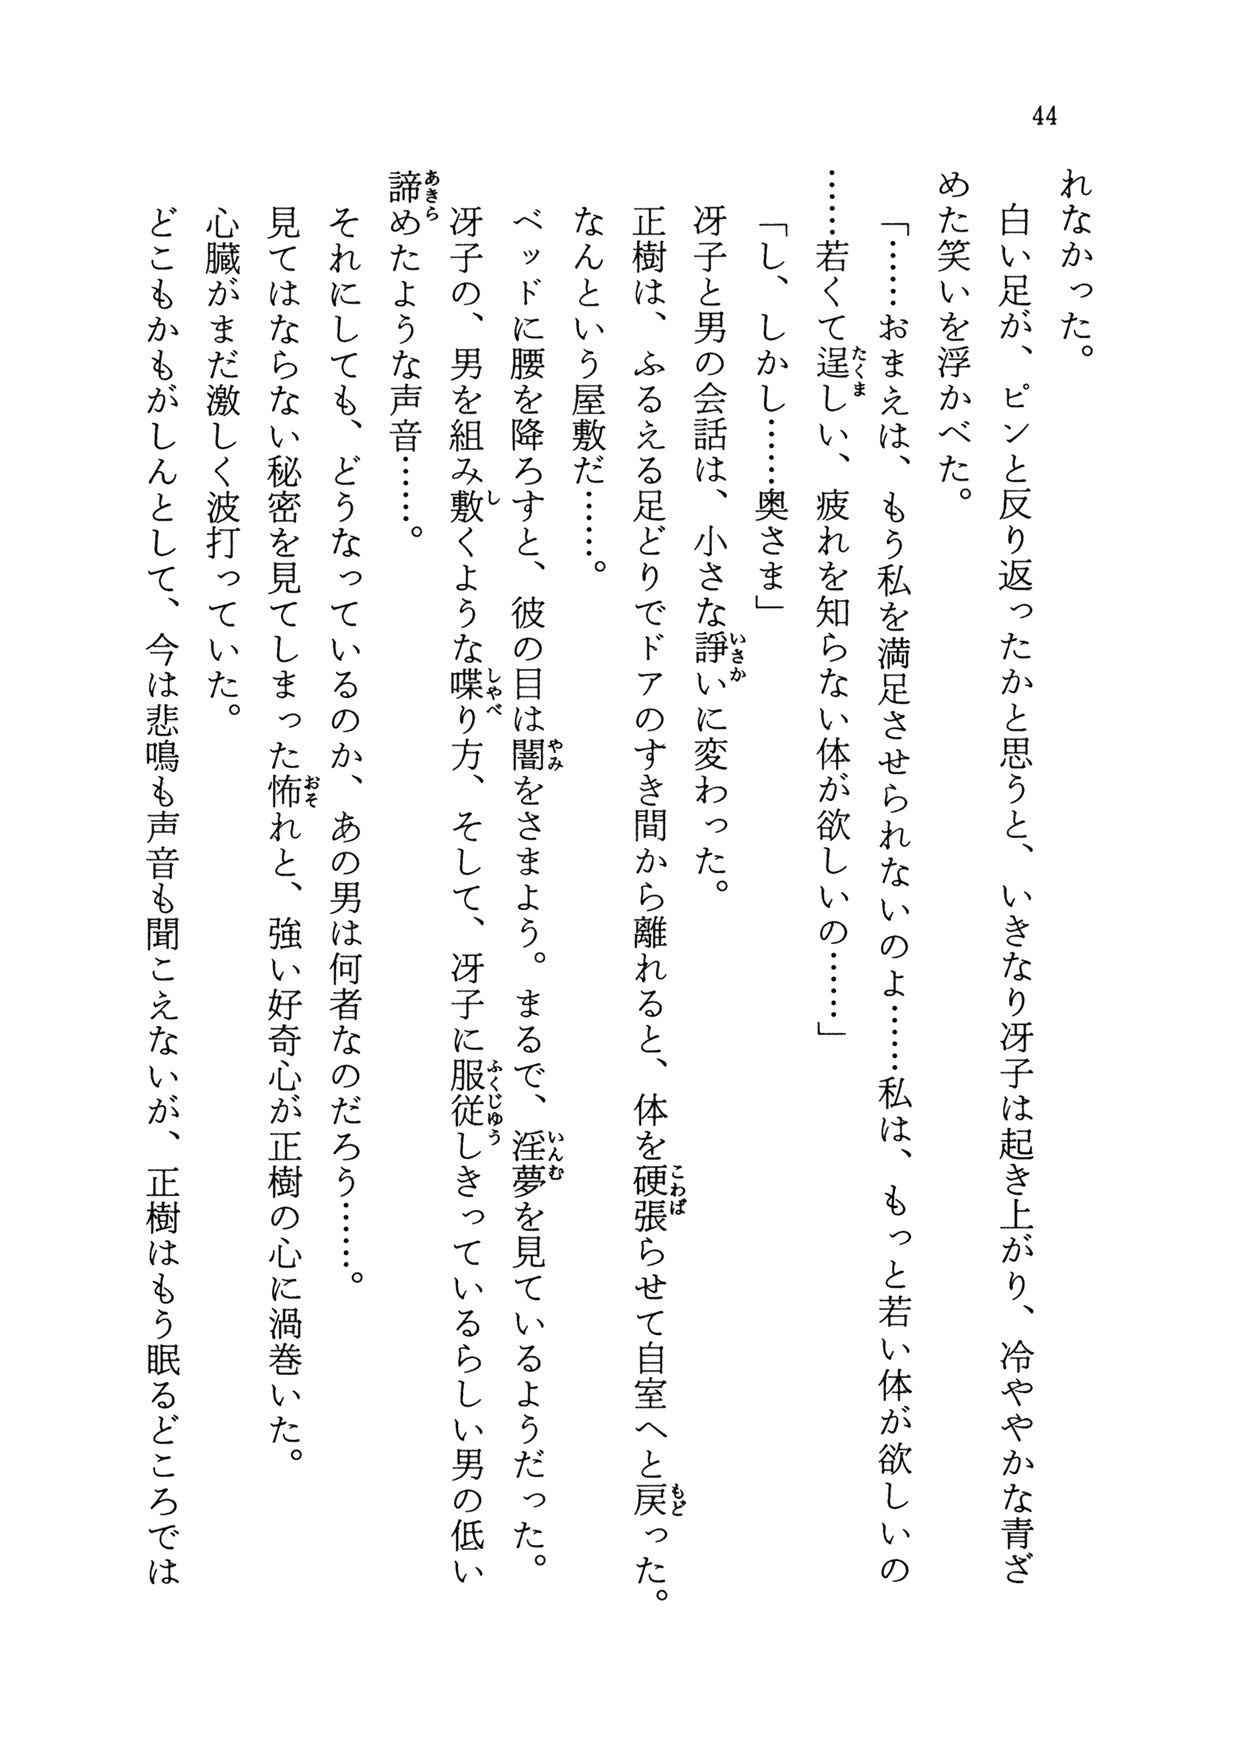 44
れなかった。
白い足が、ピンと反り返ったかと思うと、いきなり冴子は起き上がり、冷ややかな青ざ
めた笑いを浮かべた。
「……おまえは、もう私を満足させられないのよ……私は、もっと若い体が欲しいの
……若くて逞しい、疲れを知らない体が欲しいの……」
「し、しかし……奥さま」
冴子と男の会話は、小さな諍いに変わった。
正樹は、ふるえる足どりでドアのすき間から離れると、体を硬張らせて自室へと戻った。
なんという屋敷だ……。
ベッドに腰を降ろすと、彼の目は闇をさまよう。まるで、淫夢を見ているようだった。
冴子の、男を組み敷くような喋り方、そして、冴子に服従しきっているらしい男の低い
諦めたような声音……。
それにしても、どうなっているのか、あの男は何者なのだろう……。
見てはならない秘密を見てしまった怖れと、強い好奇心が正樹の心に渦巻いた。
心臓がまだ激しく波打っていた。
どこもかもがしんとして、今は悲鳴も声音も聞こえないが、正樹はもう眠るどころでは